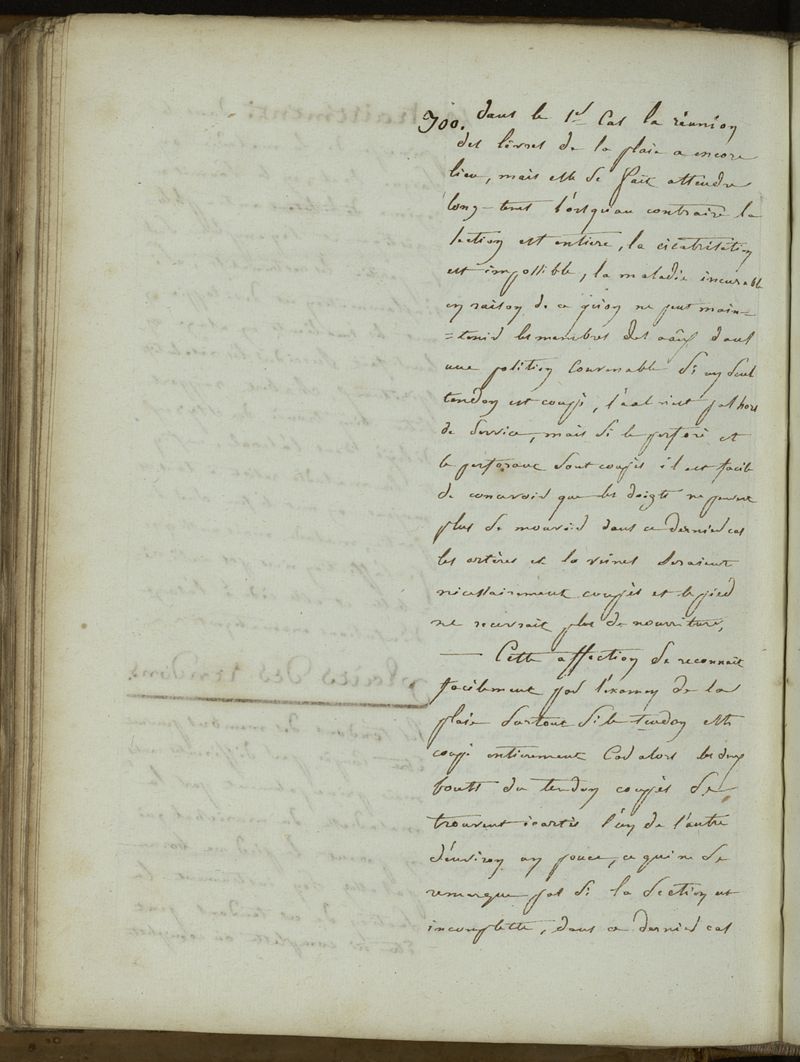 300. dans le 1er Cas la réunion
des lèvres de la plaie a encore
lieu, mais elle se fait attendre
long-tems lorsqu'au contraire la
section est entiere, la cicatrisation
est impossible, la maladie incurable
en raison de ce qu'on ne peut main=
=tenir les membres des aux dans
une position convenable si un seul
tendon est coupé, l'aal n'est pas hors
de service, mais si le perforé et
le perforant sont coupés il est facile
de concevoir que les doigts ne peuvent
plus se mouvoir dans ce dernier cas
les artères et la veines seraient
nécessairement coupés et le pied
ne recevrait plus de nourriture,
— Cette affection se reconnait
facilement par l'examen de la
plaie surtout si le tendon est
coupé entierement Car alors les deux
bouts du tendon coupés se
trouvent écartés l'un de l'autre
d'environ un pouce, ce qui ne se
remarque pas si la section est
incomplette, dans ce dernier cas
plaies des tendons